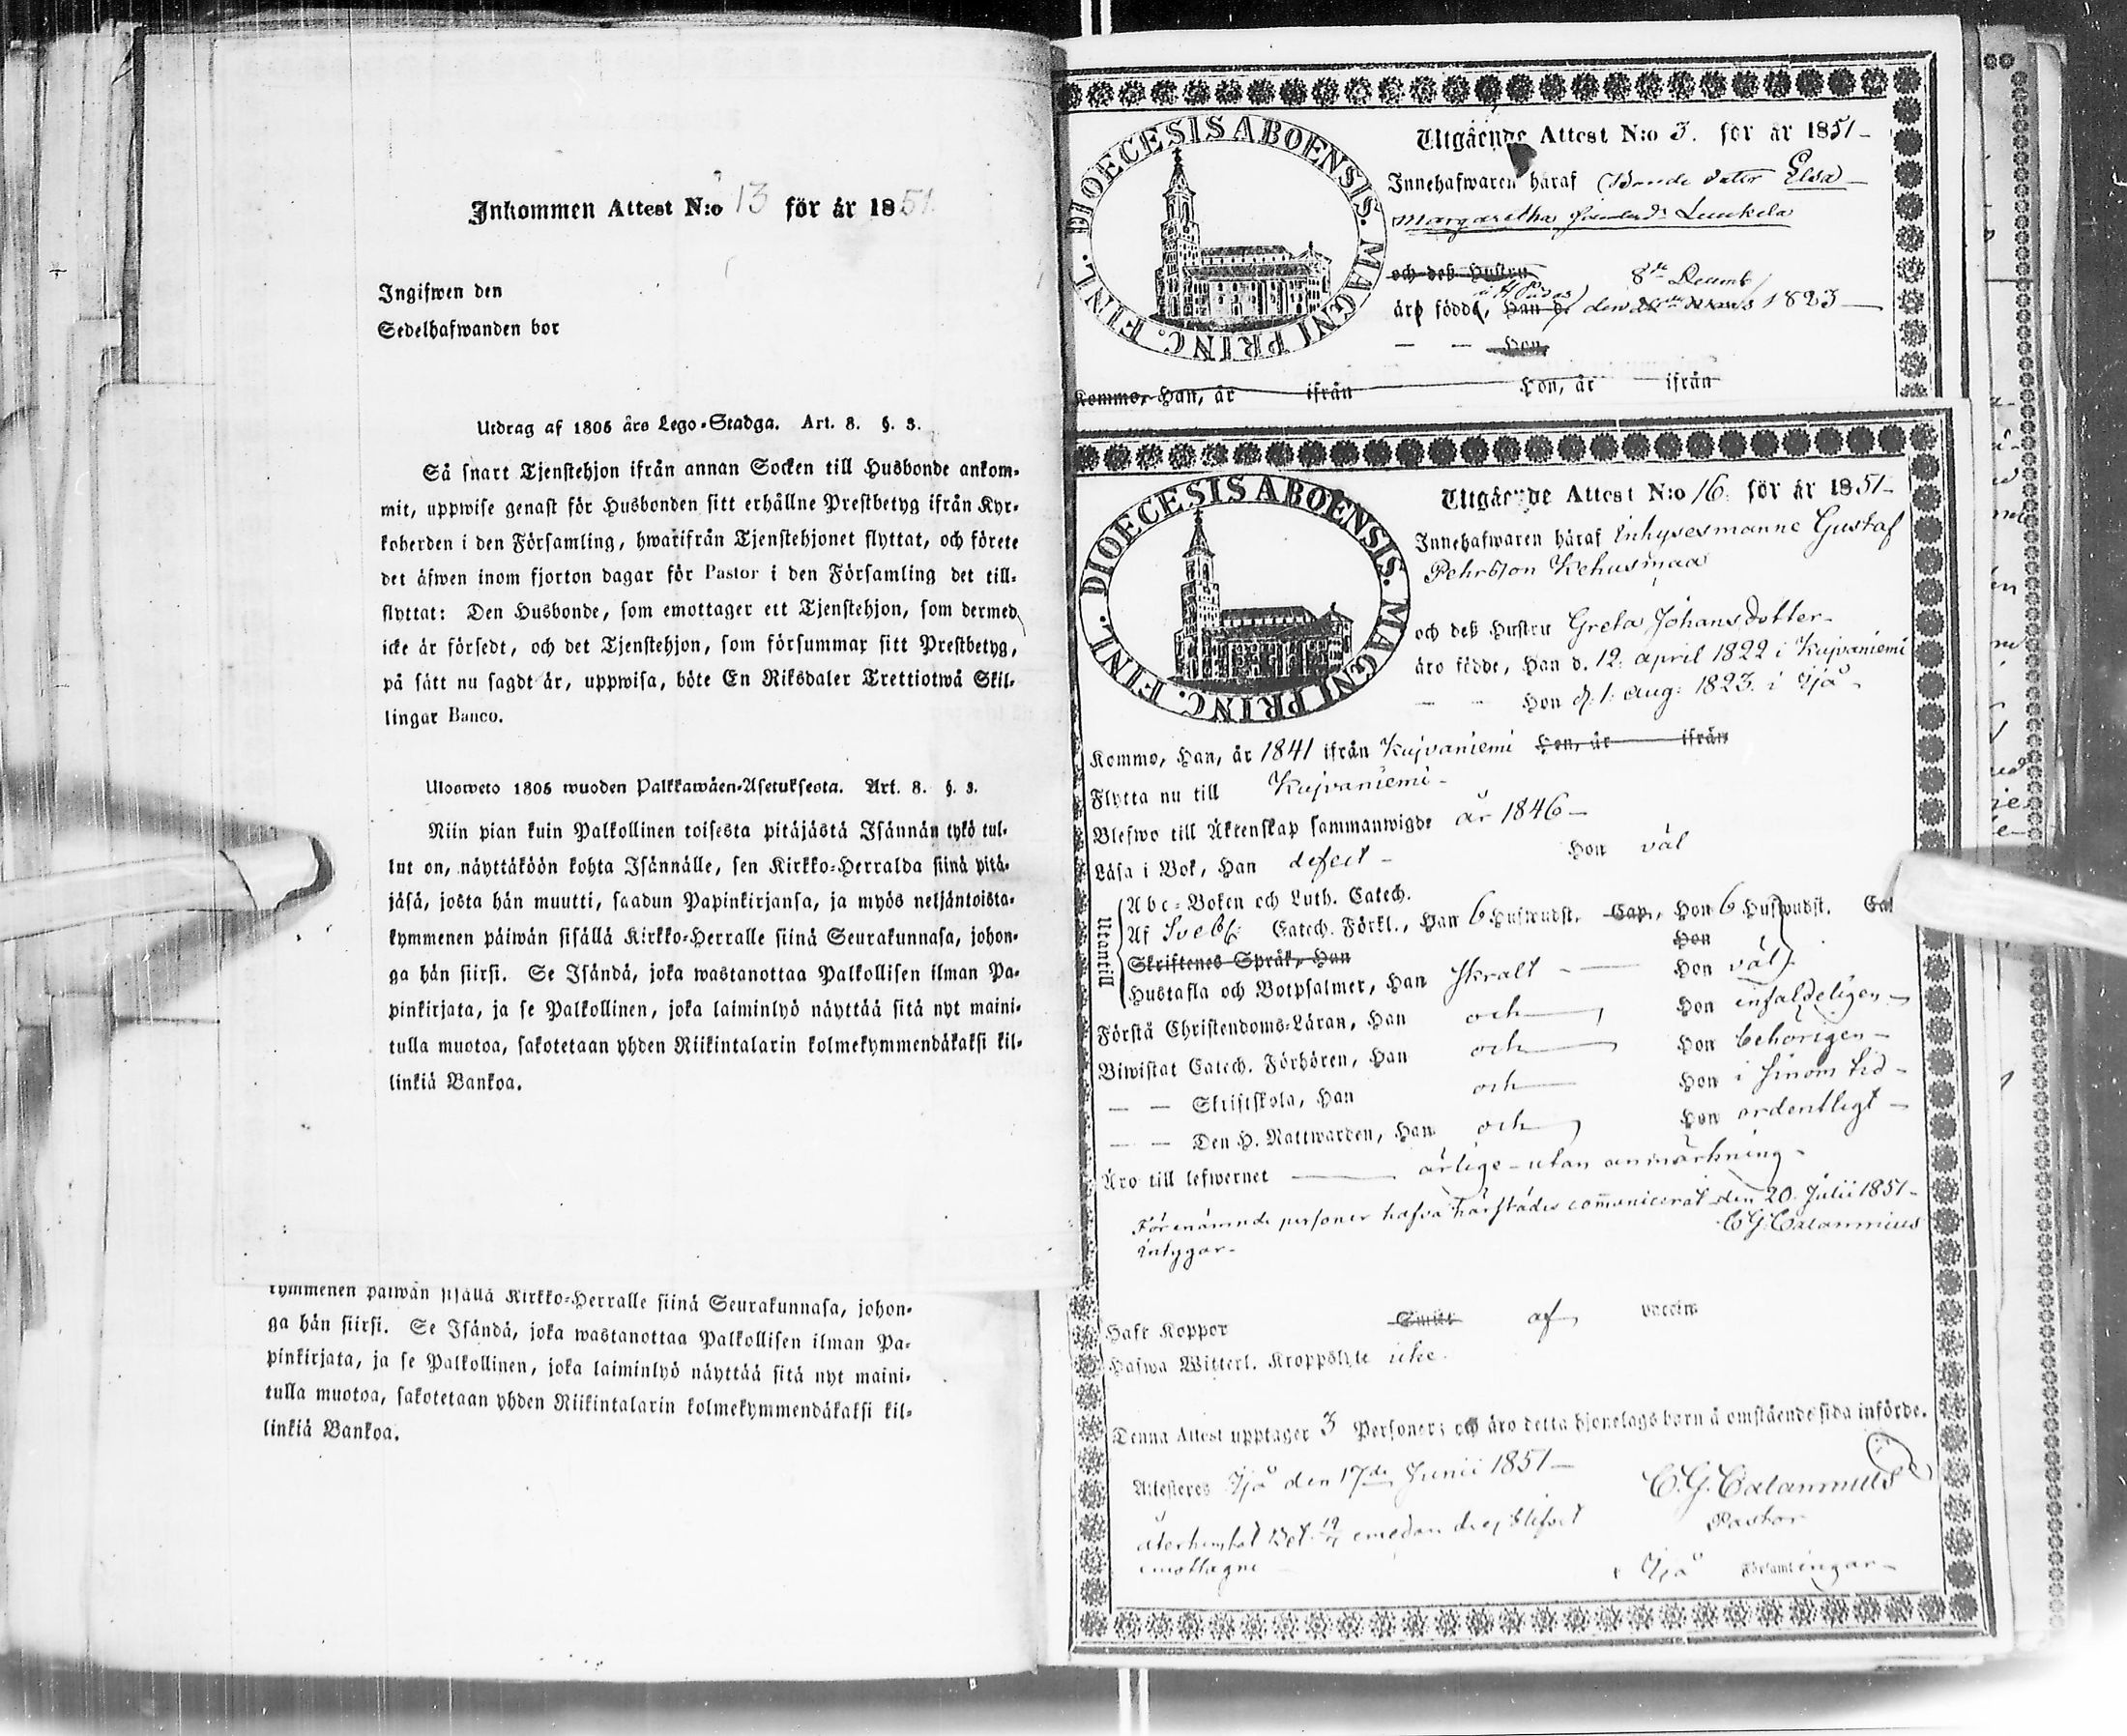 Inkommen Attest N:o 13 för år 1851.
Ingifwen den
Sedelhafwanden bor
Utdrag af 1805 års Lego-Stadga. Art. 8. §. 3.
Så snart Tjenstehjon ifrån annan Socken till Husbonde ankom-
mit, uppwise genast för Husbonden sitt erhållne Prestbetyg ifrån Kyr-
koherden i den Församling, hwarifrån Tjenstehjonet flyttat, och förete
det äfwen inom fjorton dagar för Pastor i den Församling det till-
flyttat: Den Husbonde, som emottager ett Tjenstehjon, som dermed
icke är försedt, och det Tjenstehjon, som försummar sitt Prestbetyg,
på sätt nu sagdt är, uppwisa, böte En Riksdaler Trettiotwå Skil-
lingar Banco.
Uloosweto 1805 wuoden Palkkawäen-Asetuksesta. Art. 8. §. 3.
Niin pian kuin Palkollinen toisesta pitäjästä Isännän tykö tul-
lut on, näyttäköön kohta Isännälle, sen Kirkko-Herralda siinä pitä-
jäsä, josta hän muutti, saadun Papinkirjansa, ja myös neljäntoista-
kymmenen päiwän sisällä Kirkko-Herralle siinä Seurakunnasa, johon-
ga hän siirsi. Se Isändä, joka wastanottaa Palkollisen ilman Pa-
pinkirjata, ja se Palkollinen, joka laiminlyö näyttää sitä nyt maini-
tulla muotoa, sakotetaan yhden Riikintalarin kolmekymmendäkaksi kil-
linkiä Bankoa.
kymmenen päiwän sisällä Kirkko-Herralle siinä Seurakunnasa, johon-
ga hän siirsi. Se Isändä, joka wastanottaa Palkollisen ilman Pa-
pinkirjata, ja se Palkollinen, joka laiminlyö näyttää sitä nyt maini-
tulla muotoa, sakotetaan yhden Riikintalarin kolmekymmendäkaksi kil-
linkiä Bankoa.
DIOECESIS ABOENSIS. MAGNI PRINC. FINL.
Utgående Attest N:o 3. för år 1851-
Innehafwaren häraf Bonde dotter Elsa
Margaretha
och deß Hustru 8de Decemb
äro födde, Han d. den 1823
— — Hon
Komme, Han, år ifrån Hon, år ifrån
DIOECESIS ABOENSIS. MAGNI PRINC. FINL.
Utgående Attest N:o 16. för år 1851-
Innehafwaren häraf Inhysesmanne Gustaf
Pehrsson Kehusmaa
och deß Hustru Greta Johansdotter
äro födde, Han d. 12. april 1822 i Kujvaniemi
— — Hon d. 1. aug: 1823. i Ijå
Komme, Han, år 1841 ifrån Kujvaniemi Hon, år ifrån
Flytta nu till Kujvaniemi
Blefwo till Äktenskap sammanwigde år 1846
Läsa i Bok, Han defect Hon väl
Utantill
Abc-Boken och Luth. Catech.
Af Sveb: Catech. Förkl., Han 6 Hufwudst. Cap., Hon 6 Hufwudst.
Skriftenes Språk, Han Hon
Hustafla och Botpsalmer, Han skralt Hon väl
Förstå Christendoms-Läran, Han och Hon enfaldeligen
Biwistat Catech. Förhören, Han och Hon behörigen
— — Skriftskola, Han och Hon i sinom tid
— — Den H. Nattwarden, Han och Hon ordentligt
Äro till lefwernet ärlige - utan anmärkning
Förenämnde personer hafva härstädes communicerat den 20. Julii 1851
intygar C G Calamnius
Haft Koppor af vaccin
Hafwa Witterl. Kroppslyte icke.
Denna Attest upptager 3 Personer; och äro detta hjonelags barn å omstående sida införde.
Attesteres Ijå den 17de Junii 1851
C. G. Calamnius
Pastor
återhemtat emedan de ej blifvit
emottagne
i Ijå Församlingar